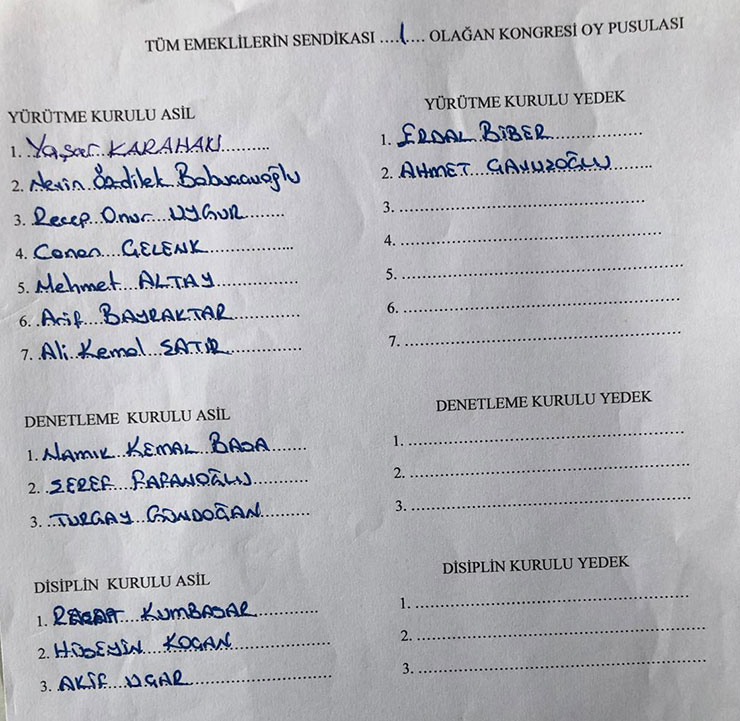 TÜM EMEKLİLERİN SENDİKASI ....1.... OLAĞAN KONGRESİ OY PUSULASI
YÜRÜTME KURULU ASİL
1. Yaşar KARAHAN
2. Nevin Özdilek Babuccuoğlu
3. Recep Onur UYGUR
4. Canan GELENK
5. Mehmet ALTAY
6. Arif BAYRAKTAR
7. Ali Kemal SATIR
YÜRÜTME KURULU YEDEK
1. ERDAL BİBER
2. AHMET GAVUZOĞLU
3.
4.
5.
6.
7.
DENETLEME KURULU ASİL
1. NAMIK KEMAL BAŞA
2. ŞEREF PAPANOĞLU
3. TURGAY GÜNDOĞAN
DENETLEME KURULU YEDEK
1.
2.
3.
DİSİPLİN KURULU ASİL
1. KUMBASAR
2. HÜSEYİN KOÇAN
3. AKİF UÇAR
DİSİPLİN KURULU YEDEK
1.
2.
3.